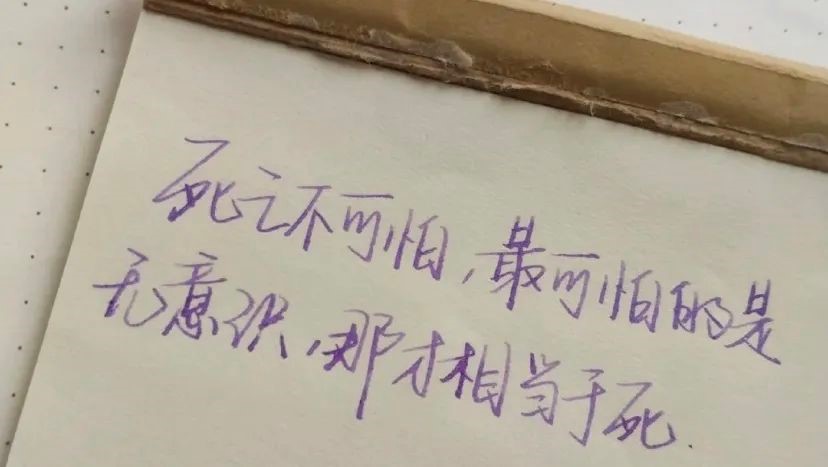 死亡不可怕,最可怕的是
无意识,那才相当于死.